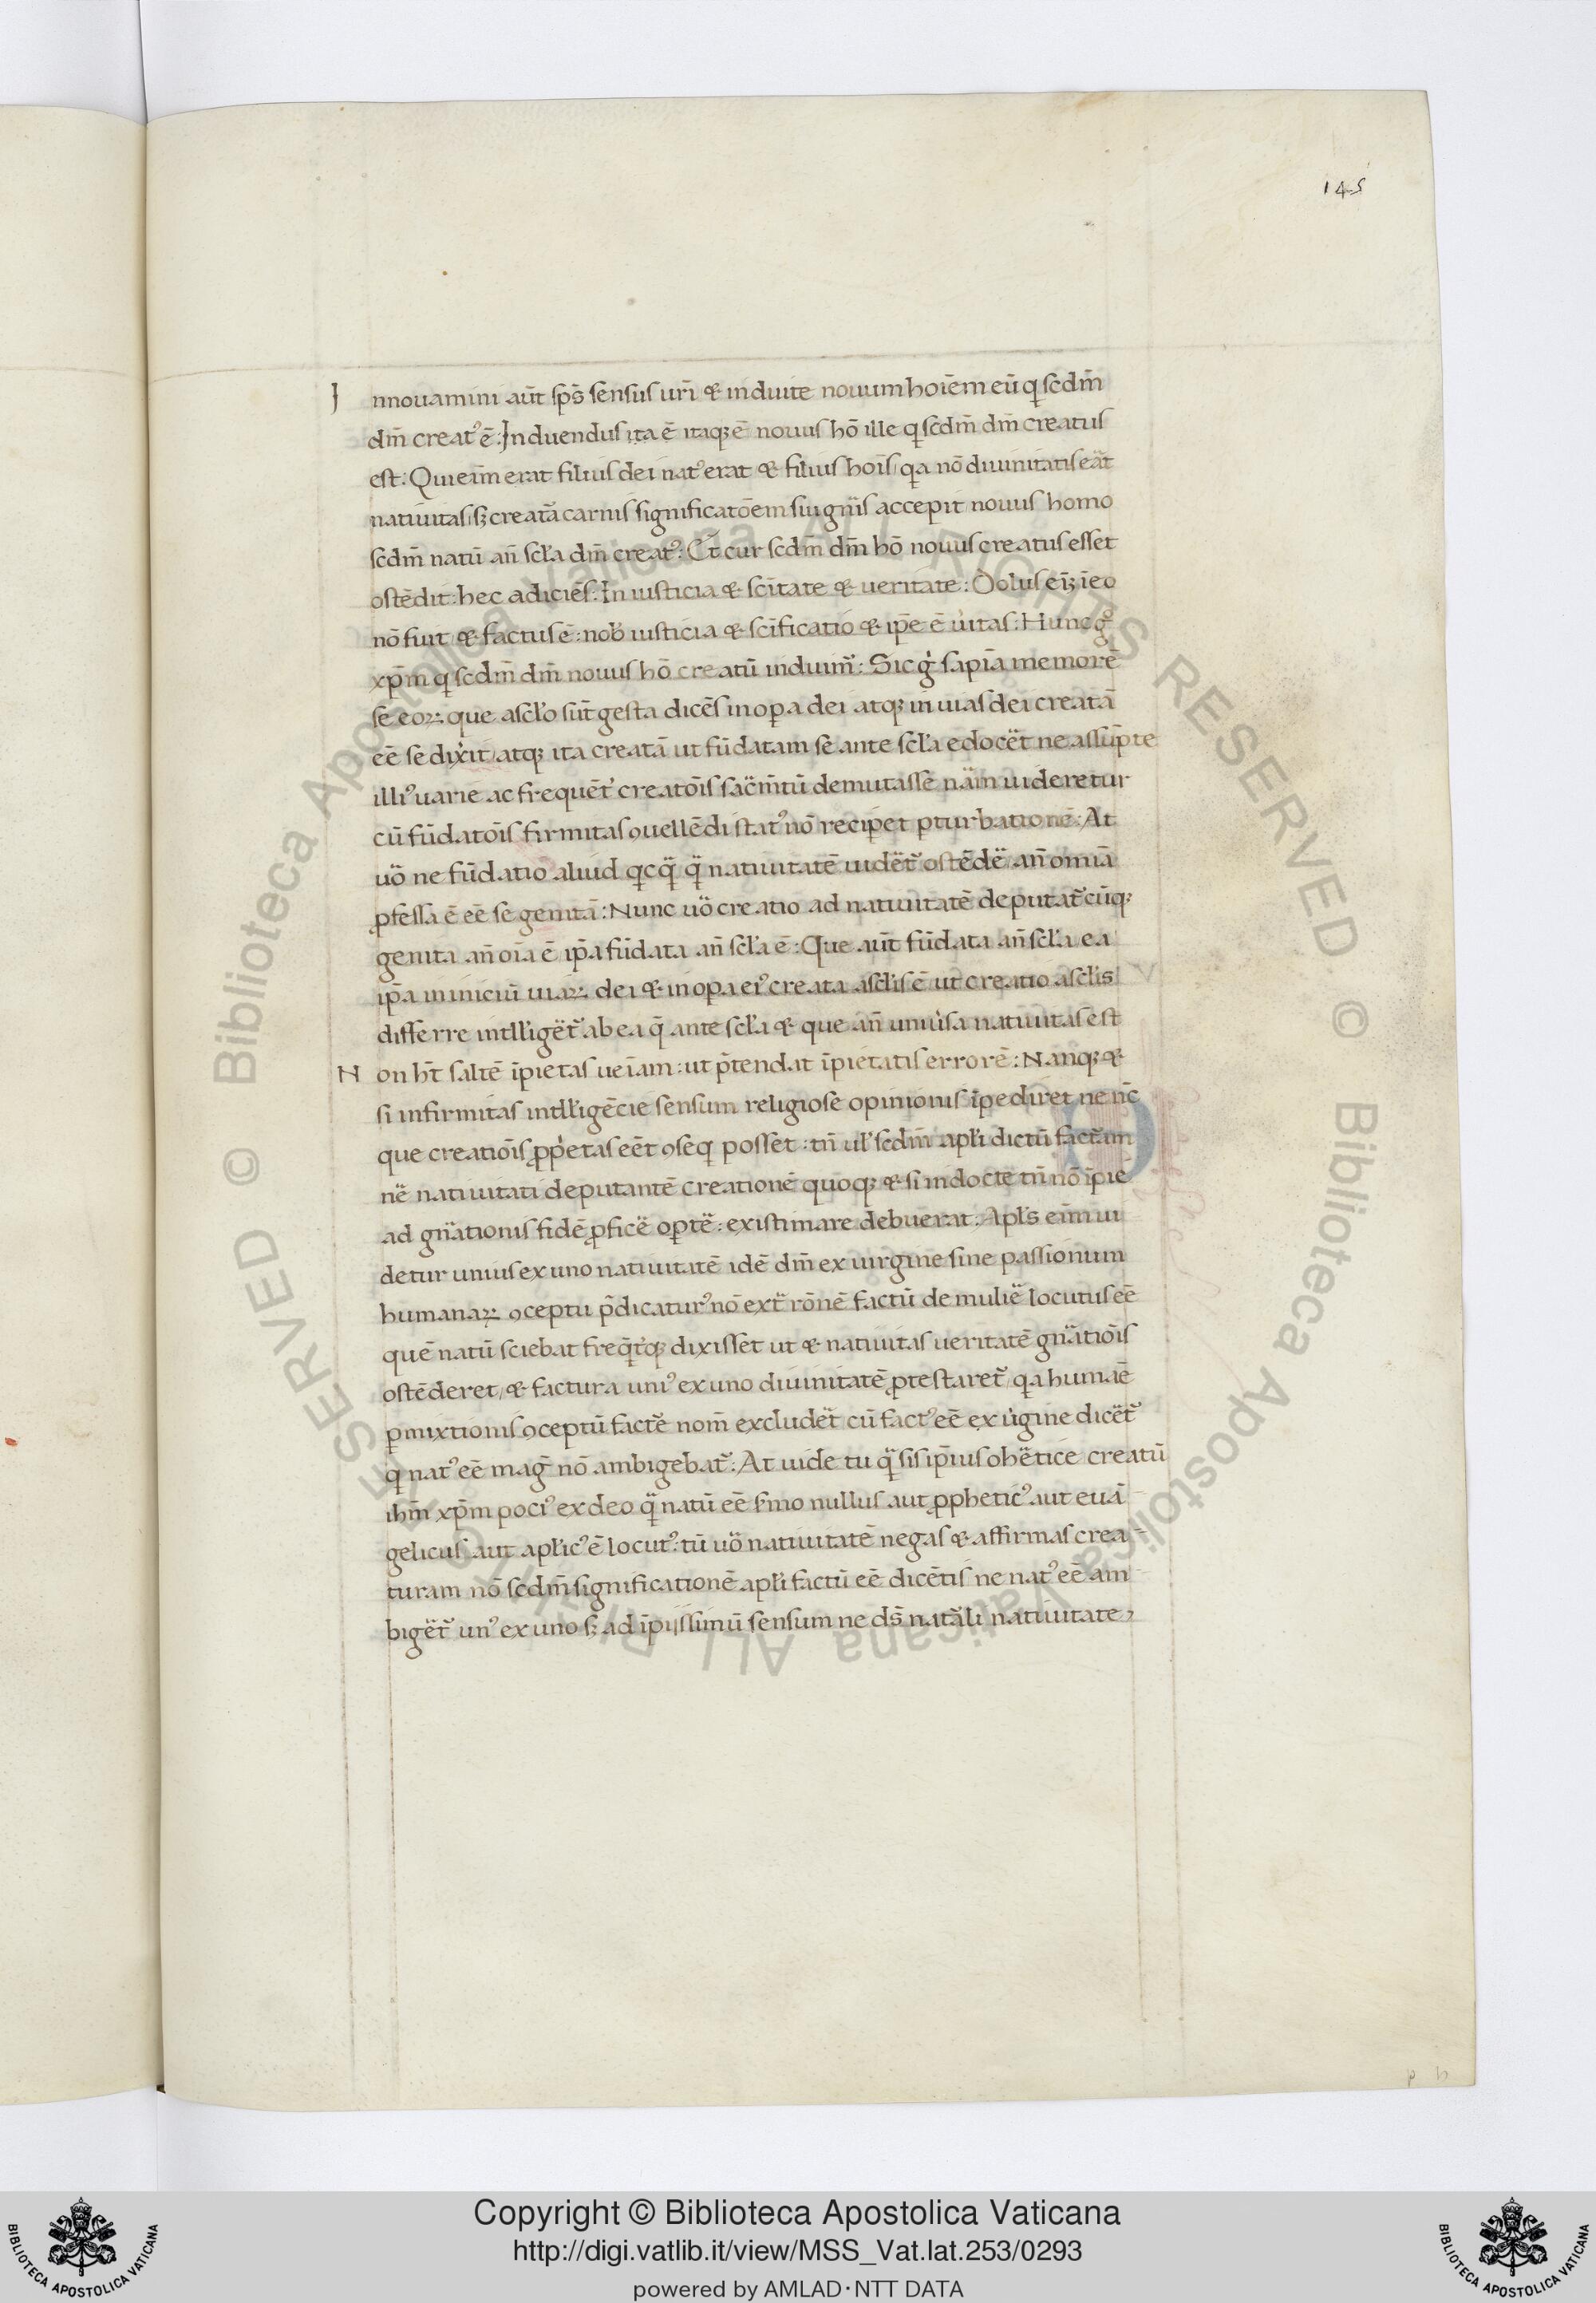 145
Innouamini aūt sp̄s sensus ur̄i & induite nouum hoīem eū q scdm̄
dm̄ creatꝰ ē: Induendus ita ē itaqꝫ ē nouus hō ille q scdm̄ dm̄ creatus
est: Qui eīm erat filius dei natꝰ erat & filius hoīs qa nō diuinitatis erāt
natiuitas sꝫ creatā carnis significatōem siu gn̄is accepit nouus homo
scdm̄ natū an̄ scl̓a dm̄ creatꝰ: Et cur scdm̄ dm̄ hō nouus creatus esset
ostēdit: hec adiciēs: In iusticia & scītate & ueritate: Dolus eīꝫ ī eo
nō fuit & factus ē: nob̓ iusticia & scīficatio & ip̄e ē u̓itas: Hunc gͦ
xp̄m q scdm̄ dm̄ nouus hō creatū induim̓: Sic g̓ sapīa memorē
se eoꝝ que a scl̓o sūt gesta dicēs in opa dei atqꝫ in uias dei creatā
eē se dix̓it atqꝫ ita creatā ut fūdatam se ante scl̓a edocēt ne assūpte
illiꝰ uarie ac frequēt̓ creatōis sacm̄tū demutasse nām uideretur
cū fūdatōis firmitas ꝯuellēdi statꝰ nō recipet pturbationē: At
uo̓ ne fūdatio aliud qcq̈ q̈ natiuitatē uidēt᷑ ostēdē an̄ omiā
pfessa ē eē se genitā: Nunc uo̓ creatio ad natiuitatē deputat᷑ cūqꝫ
genita an̄ oīa ē ip̄a fūdata an̄ scl̓a ē: Que aūt fūdata an̄ scl̓a ea
ip̄a in iniciū uiaꝝ dei & in opa eiꝰ creata a scl̓is ē ut creatio a scl̓is
differre intll̓iget᷑ ab ea q̄ ante scl̓a & que an̄ uniu̓sa natiuitas est
Non hт̄ saltē īpietas ueīam: ut p̄tendat īpietatis errorē: Nanqꝫ &
si infirmitas intll̓igēcie sensum religiose opinionis īpediret ne nc̄
que creatiōis pp̓etas eēt ꝯseq posset: tn̄ ul̓ scdm̄ apl̓i dictū factām
nē natiuitati deputantē creationē quoqꝫ & si indocte tn̄ nō īpie
ad gn̄ationis fidē pficē optē: existimare debuerat: Apl̓s eīm ui
detur unius ex uno natiuitatē idē dm̄ ex uirgine sine passionum
humanaꝝ ꝯceptu p̄dicatur᷑ nō ext̄ rōnē factū de muliē locutus eē
quē natū sciebat freq̄t̓qꝫ dixisset ut & natiuitas ueritatē gn̄atiōis
ostēderet, & factura uniꝰ ex uno diuinitatē ptestaret᷑ qa humāe
pmixtionis ꝯceptū fact᷑e nom̄ excludēt cū factꝰ eē ex u̓gine dicēt᷑
q natꝰ eē mag̓ nō ambigebat᷑: At uide tu q̈ sis ip̄ius ohētice creatū
ihm̄ xp̄m pociꝰ ex deo q̈ natū eē s̓mo nullus aut ppheticꝰ aut euā
gelicus aut apl̓icꝰ ē locutꝰ: tū uo̓ natiuitatē negas & affirmas crea-
turam nō scdm̄ significationē apl̓i factū eē dicētis ne natꝰ eē am
bigēt᷑ unꝰ ex uno sꝫ ad īpijssimū sensum ne ds̄ natāli natiuitate,
© Biblioteca Apostolica Vaticana ALL RIGHTS RESERVED © Biblioteca Apostolica Vaticana ALL RIGHTS RESERVED
Copyright © Biblioteca Apostolica Vaticana
http://digi.vatlib.it/view/MSS_Vat.lat.253/0293
powered by AMLAD·NTT DATA
BIBLIOTECA APOSTOLICA VATICANA
BIBLIOTECA APOSTOLICA VATICANA